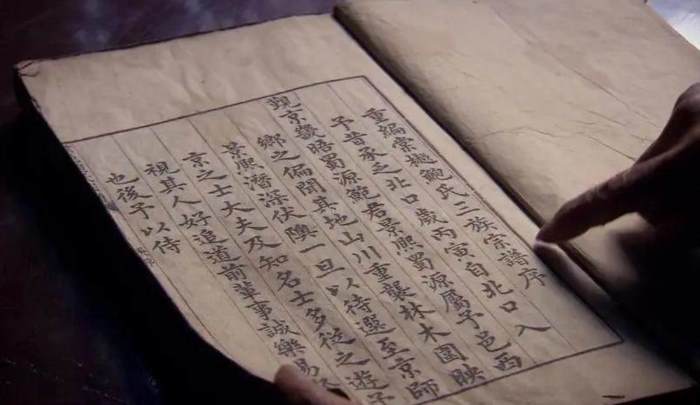 重編棠樾鮑氏三族宗譜序
予昔承乏北口歲丙寅自北口入
覲京畿晤蜀源鮑君景熈蜀源屬予邑西
鄉之偏聞其地山川重襲林木園映
景熈潛深伏隩一旦以待選至京師
京之士大夫及知名士多從之遊予
視其人好追道前輩事誠樂易
也後予以侍